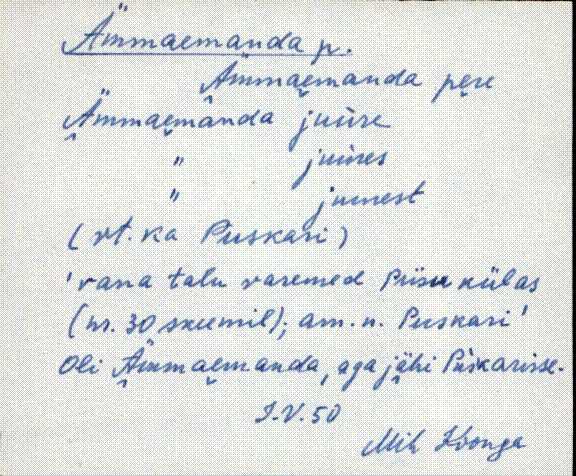 Ämmaemanda p.
Ämmaemanda pere
Ämmaemanda juure
" juures
" juurest
(vt. ka Puskari)
'vana talu varemed Piisu külas
(nr. 30 skeemil); am. n. Puskari'
Oli Ämmaemanda, aga jähi Puskarisse.
I.V.50
Mih